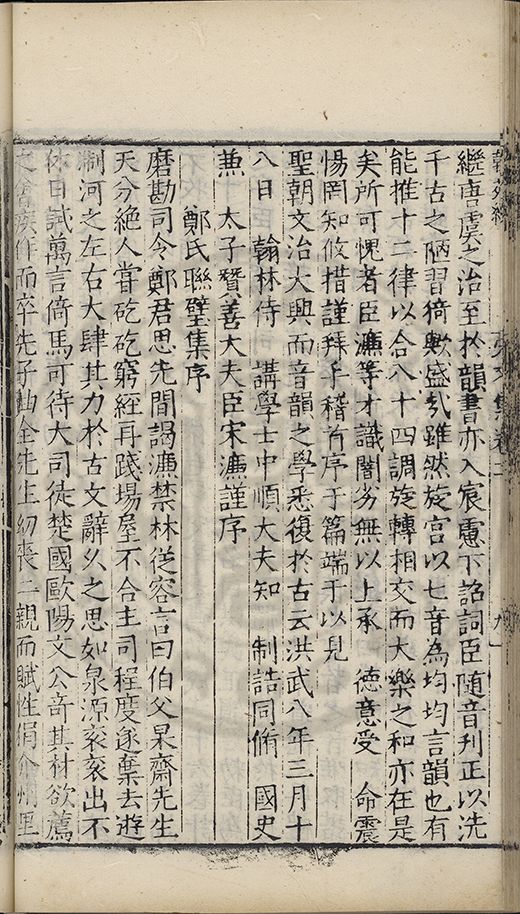 繼唐虞之治至於韻書亦入宸慮下詔詞臣隨音刊正以洗
千古之陋習猗歟盛哉雖然旋宮以七音為均均言韻也有
能推十二律以合八十四調旋轉相交而大樂之和亦在是
矣所可愧者臣濂等才識闇劣無以上承 德意受 命震
惕罔知攸措謹拜手稽首序于篇端于以見
聖朝文治大興而音韻之學悉復於古云洪武八年三月十
八日 翰林侍 講學士中順大夫知 制誥同脩 國史
兼 太子贊善大夫臣宋濂謹序
鄭氏聯璧集序
磨勘司令鄭君思先間謁濂禁林從容言曰伯父杲齋先生
天分絕人嘗矻矻窮經再踐場屋不合主司程度遂棄去遊
淛河之左右大肆其力於古文辭久之思如泉源衮衮出不
休日試萬言倚馬可待大司徒楚國歐陽文公奇其材欲薦
之會疾作而卒先子曲全先生幼喪二親而賦性狷介州里